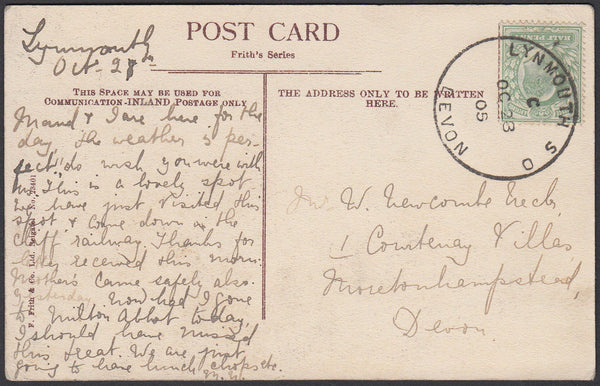 Lynmouth
Oct. 23
POST CARD
Frith's Series
THIS SPACE MAY BE USED FOR
COMMUNICATION-INLAND POSTAGE ONLY
THE ADDRESS ONLY TO BE WRITTEN
HERE.
HALF PENNY
LYNMOUTH S.O
C
OC 23
05
DEVON
Maud & I are here for the
day, the weather is per-
fect, do wish you were with
us. This is a lovely spot
we have just visited this
spot & come down in the
cliff railway. Thanks for
letter received this morn.
Mother's came safely also
yesterday. Now had I gone
to Milton Abbot to-day,
I should have missed
this treat. We are just
going to have lunch chops etc.
Mr. W. Newcombe
1 Courtenay Villas
Moretonhampstead,
Devon
F. Frith & Co. Ltd., Reigate. No.